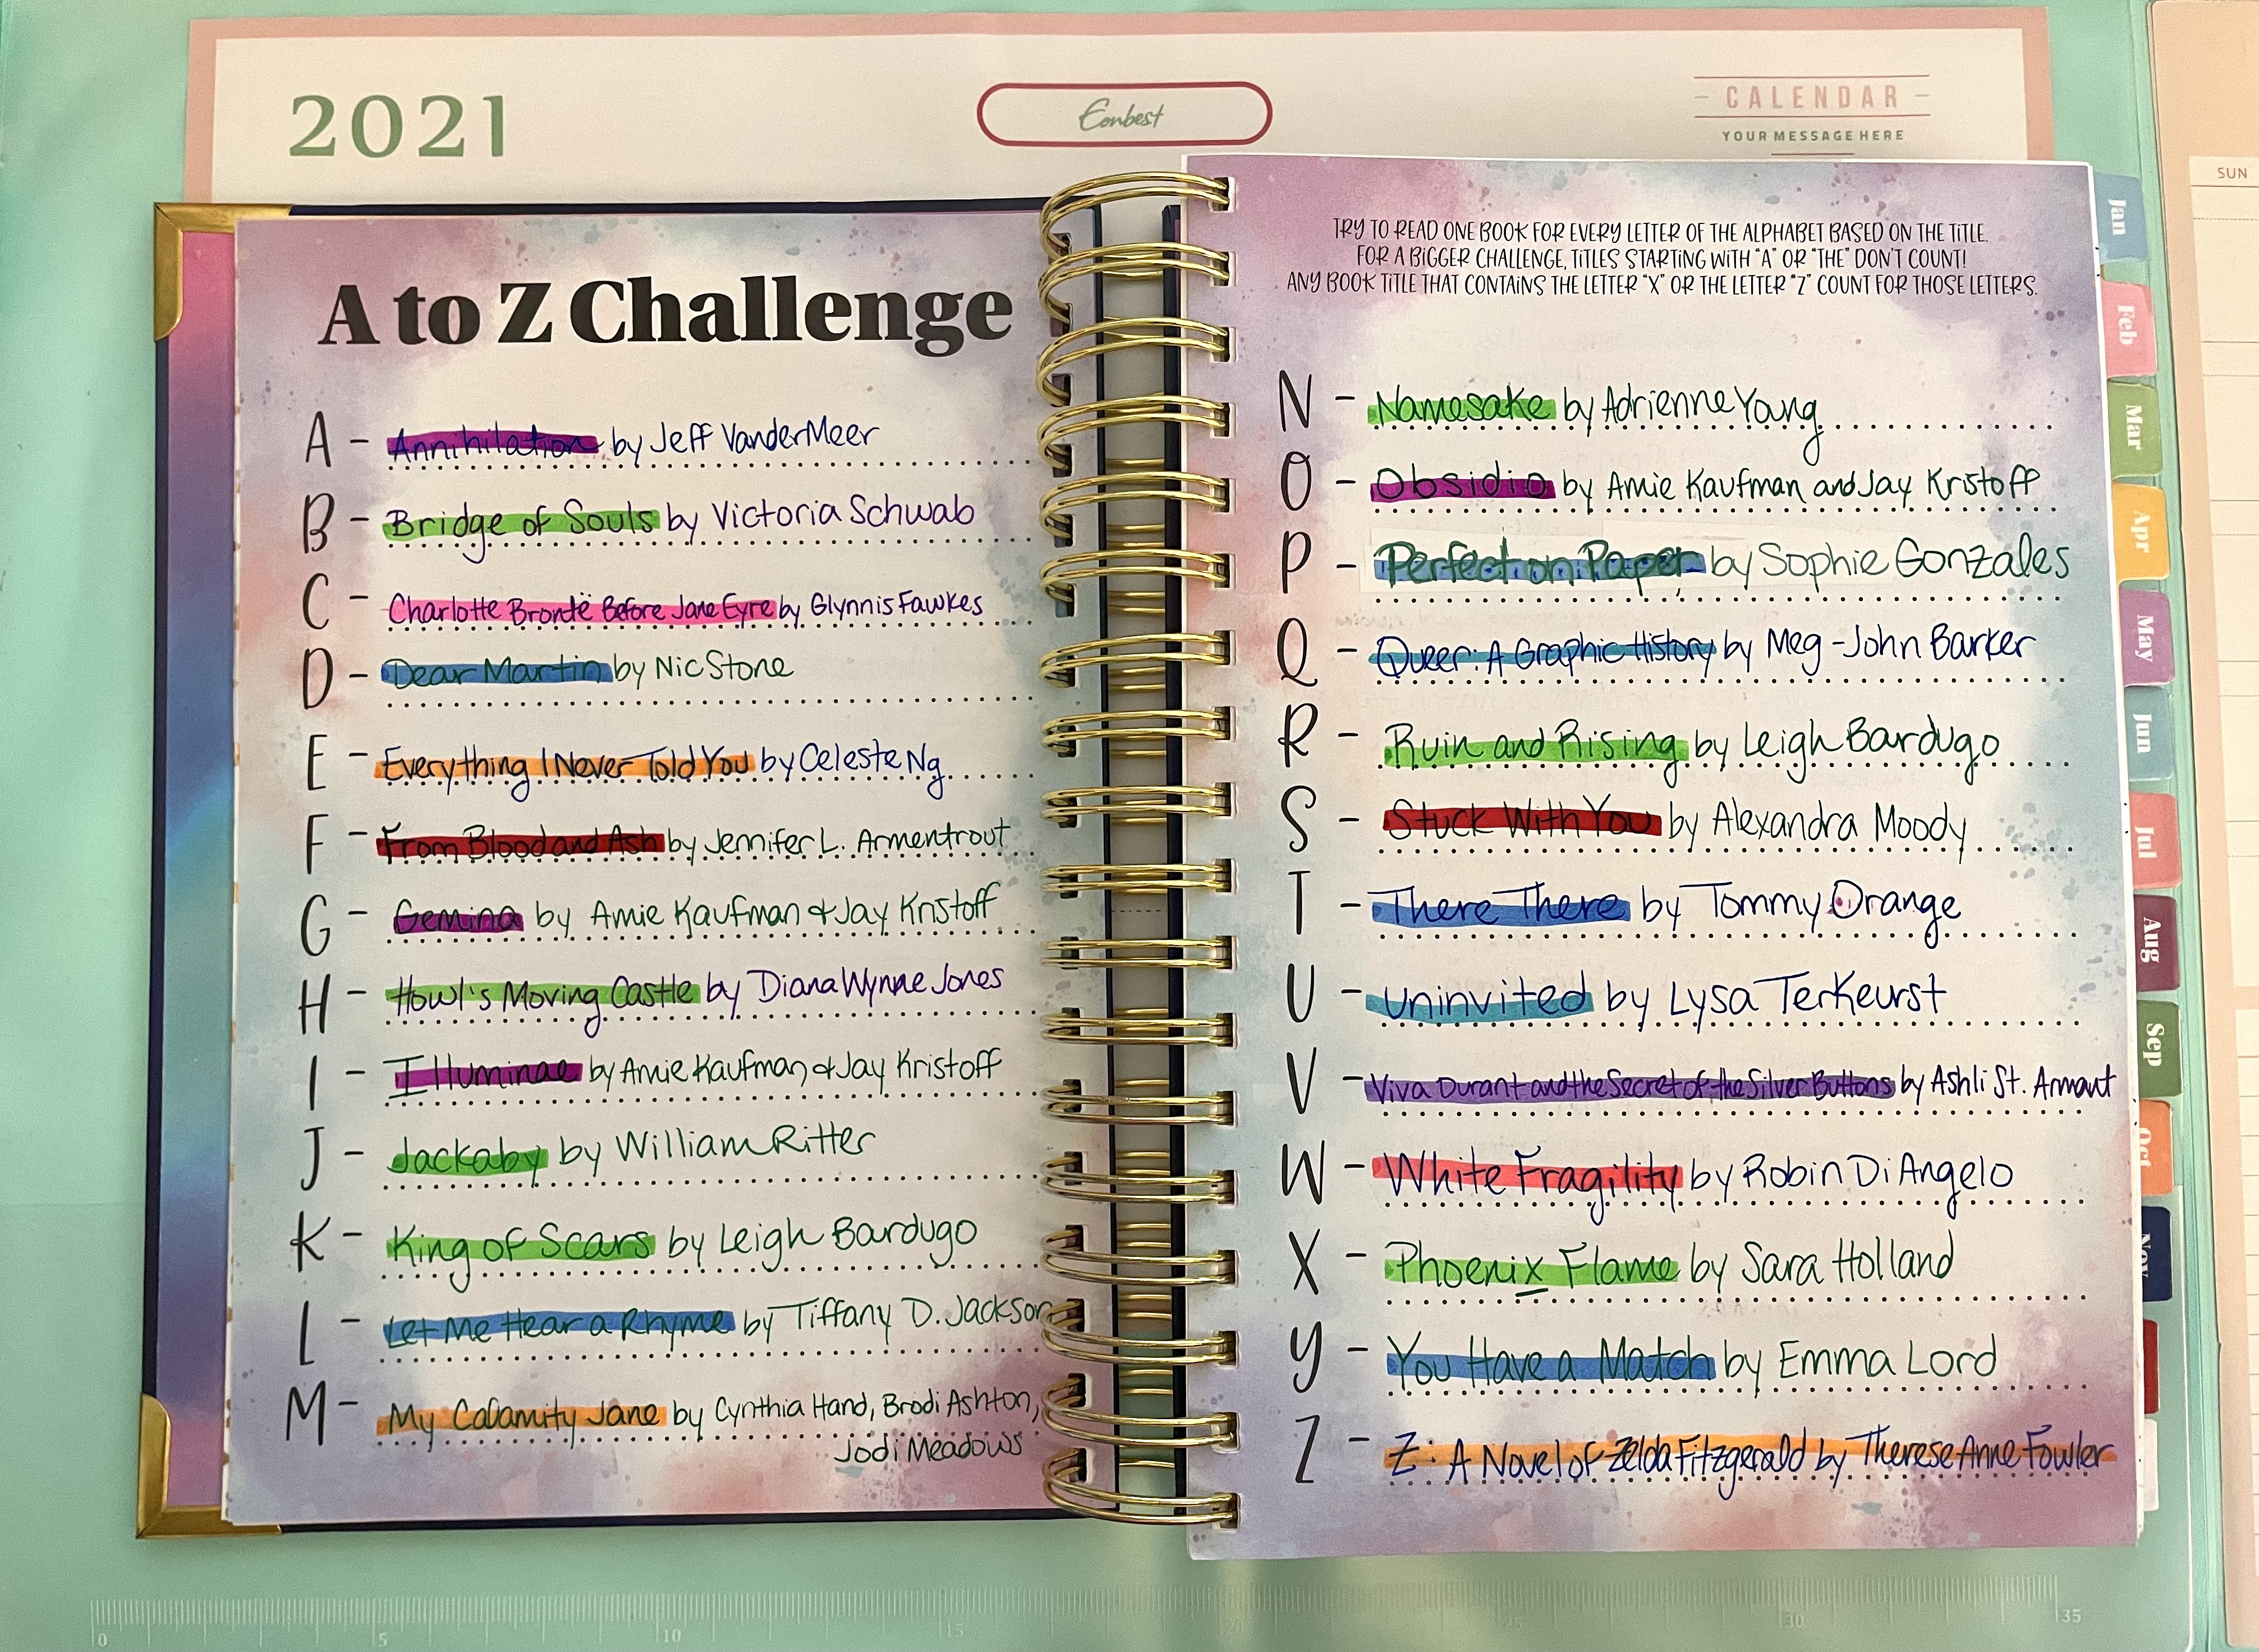 2021
Eonbest
CALENDAR
YOUR MESSAGE HERE
SUN
A to Z Challenge
A - Annihilation by Jeff VanderMeer
B - Bridge of Souls by Victoria Schwab
C - Charlotte Brontë Before Jane Eyre by Glynnis Fawkes
D - Dear Martin by Nic Stone
E - Everything I Never Told You by Celeste Ng
F - From Blood and Ash by Jennifer L. Armentrout
G - Gemina by Amie Kaufman & Jay Kristoff
H - Howl's Moving Castle by Diana Wynne Jones
I - Illuminae by Amie Kaufman & Jay Kristoff
J - Jackaby by William Ritter
K - King of Scars by Leigh Bardugo
L - Let Me Hear a Rhyme by Tiffany D. Jackson
M - My Calamity Jane by Cynthia Hand, Brodi Ashton,
Jodi Meadows
TRY TO READ ONE BOOK FOR EVERY LETTER OF THE ALPHABET BASED ON THE TITLE.
FOR A BIGGER CHALLENGE, TITLES STARTING WITH "A" OR "THE" DON'T COUNT!
ANY BOOK TITLE THAT CONTAINS THE LETTER "X" OR THE LETTER "Z" COUNT FOR THOSE LETTERS.
N - Namesake by Adrienne Young
O - Obsidio by Amie Kaufman and Jay Kristoff
P - Perfect on Paper by Sophie Gonzales
Q - Queer: A Graphic History by Meg-John Barker
R - Ruin and Rising by Leigh Bardugo
S - Stuck With You by Alexandra Moody
T - There There by Tommy Orange
U - Uninvited by Lysa TerKeurst
V - Viva Durant and the Secret of the Silver Buttons by Ashli St. Armant
W - White Fragility by Robin DiAngelo
X - Phoenix Flame by Sara Holland
Y - You Have a Match by Emma Lord
Z - Z: A Novel of Zelda Fitzgerald by Therese Anne Fowler
Jan
Feb
Mar
Apr
May
Jun
Jul
Aug
Sep
Oct
Nov
0 5 10 15 20 25 30 35